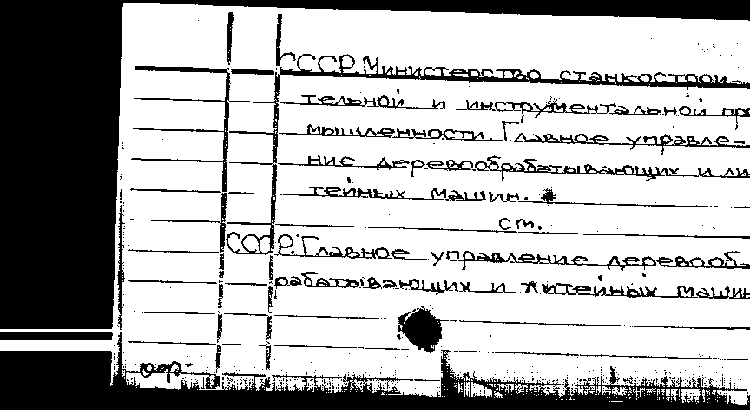 СССР. Министерство станкострои-
тельной и инструментальной про
мышленности. Главное управле-
ние деревообрабатывающих и ли
тейных машин.
см.
СССР. Главное управление деревооб-
рабатывающих и литейных машин